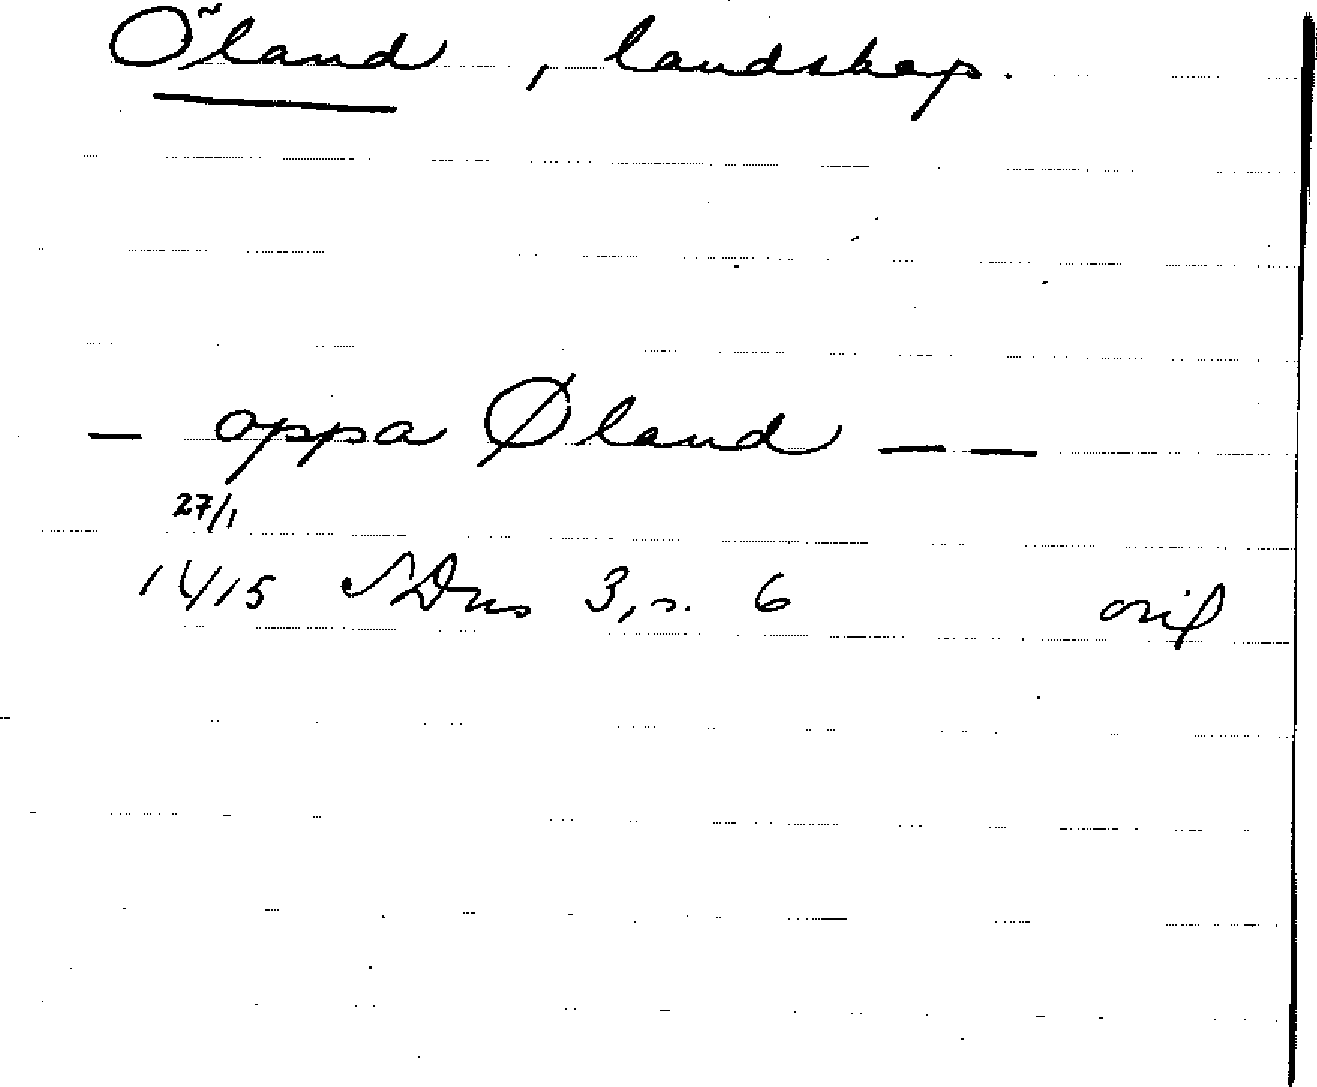 Öland, landskap.
— oppa Øland — —
27/1
1415 SDns 3, s. 6 orig